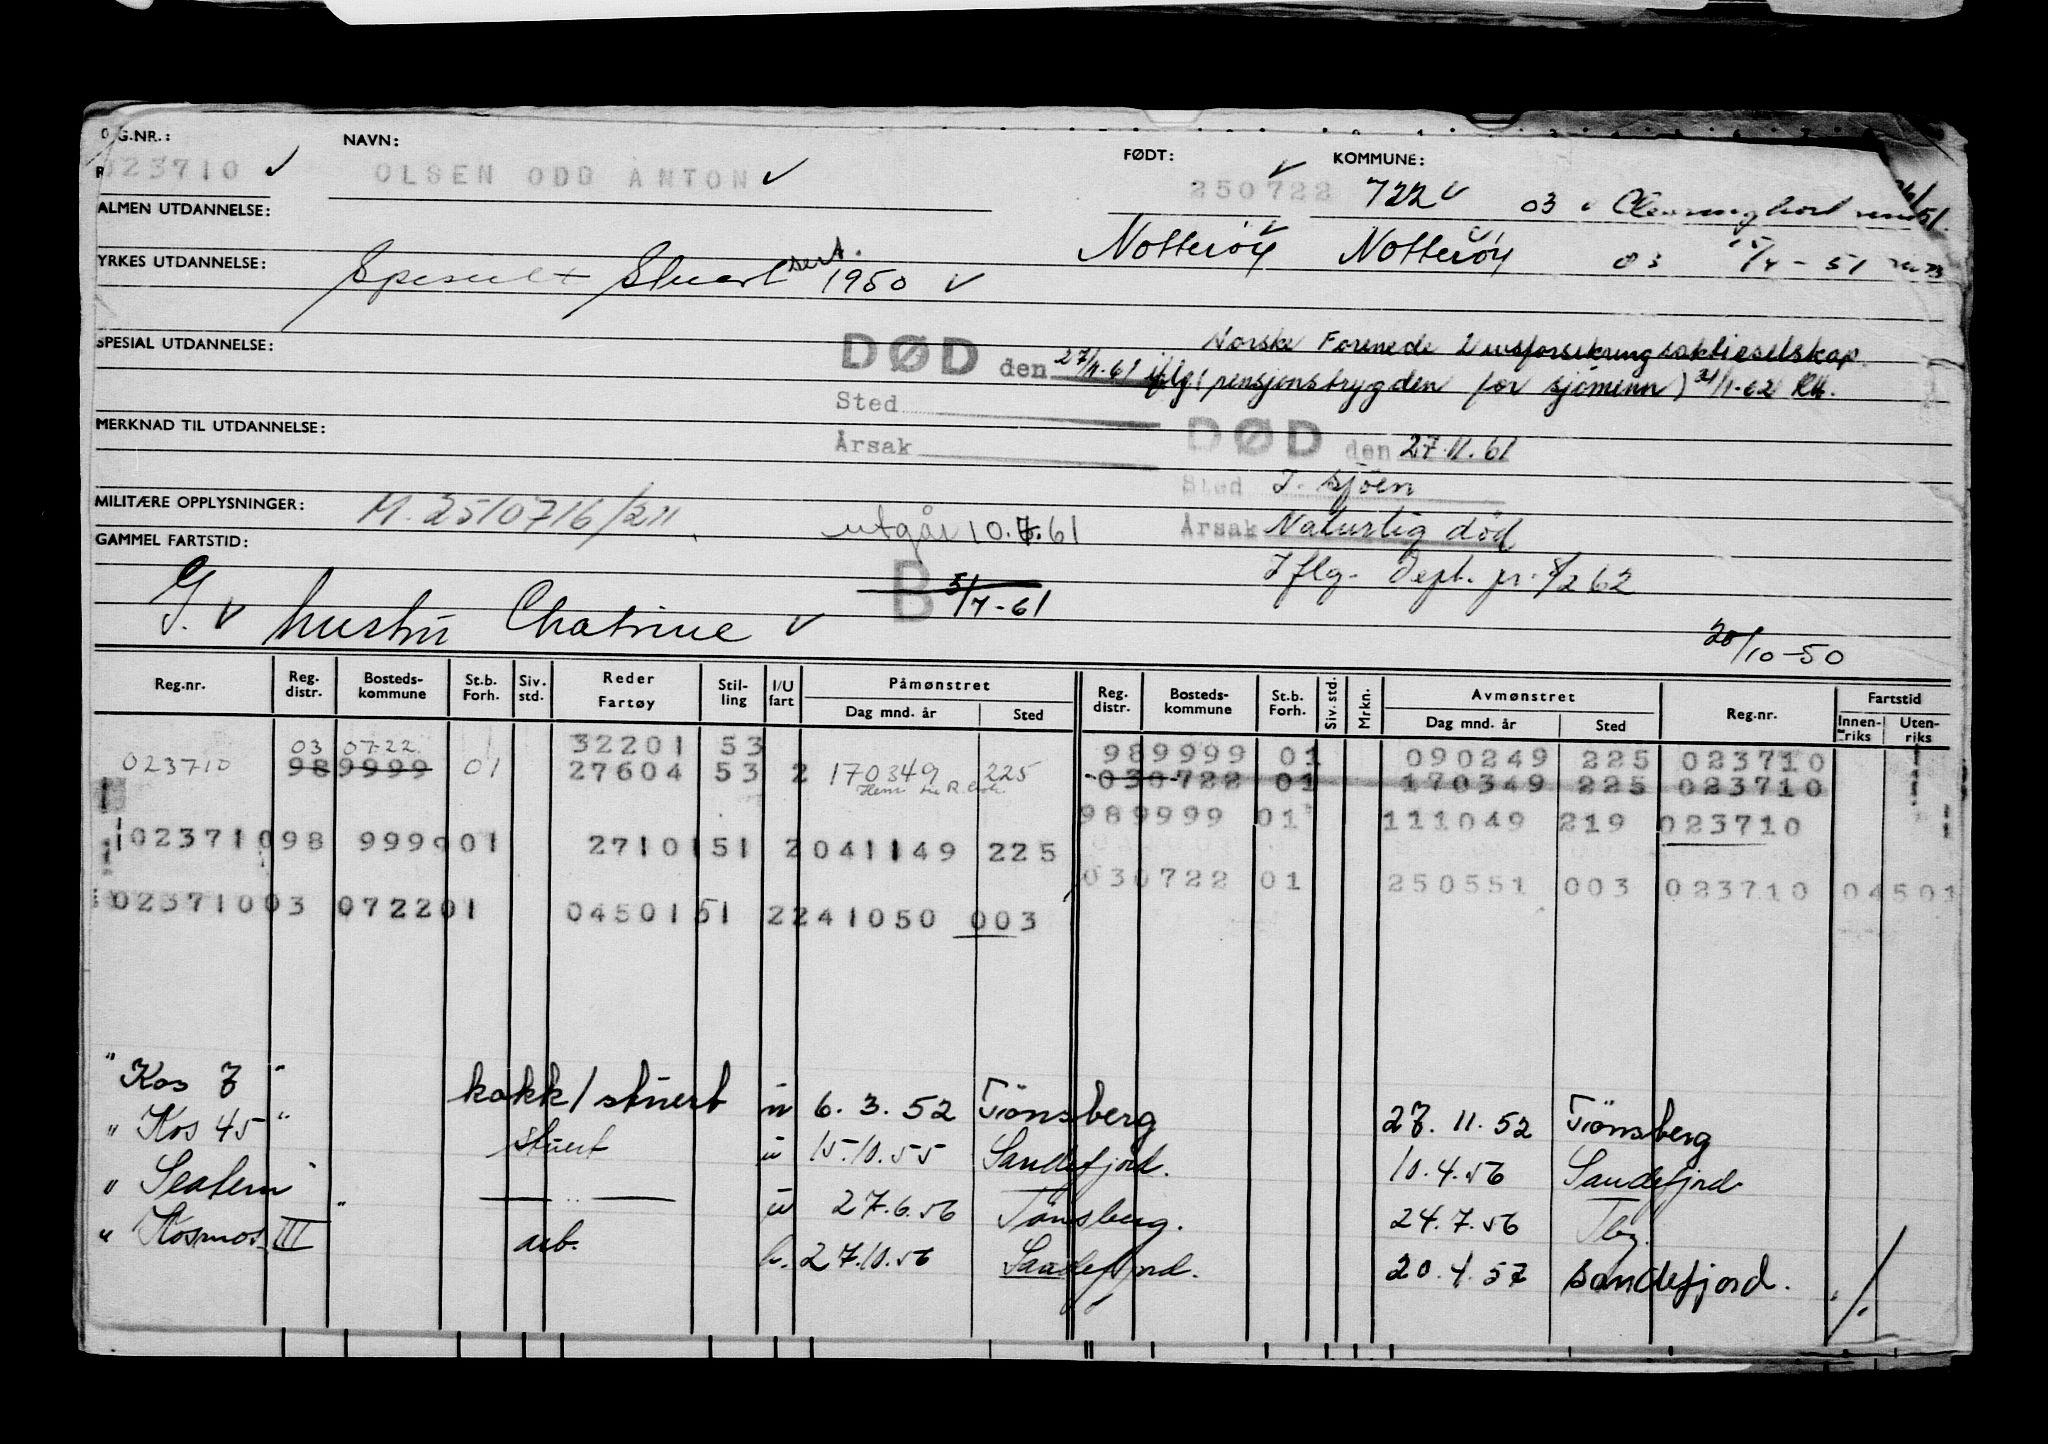 G.NR.: NAVN: FØDT: KOMMUNE:
023710 OLSEN ODD ANTON 250722 722 03
ALMEN UTDANNELSE: Nøtterøy Nøtterøy 03 5/4-51
YRKES UTDANNELSE: Stuert sert. 1950
SPESIAL UTDANNELSE:
DØD den 27/11-61 iflg Norske Forenede Livsforsikringsaktieselskap
(pensjonstrygden for sjømenn) 31/1-62
Sted
Årsak
MERKNAD TIL UTDANNELSE:
DØD den 27.11.61
Sted I. sjøen
Årsak Naturlig død
Iflg. Dept. pr. 8/2 62
MILITÆRE OPPLYSNINGER: M. 2510716/211
utgår 10.7.61
GAMMEL FARTSTID:
B 5/7-61
G. hustru Chatrine
20/10-50
Reg.nr. Reg. distr. Bosteds-kommune St.b. Forh. Siv. std. Reder Fartøy Stil-ling I/U fart Påmønstret Dag mnd. år Sted Reg. distr. Bosteds-kommune St.b. Forh. Siv. std. Mrkn. Avmønstret Dag mnd. år Sted Reg.nr. Fartstid Innen-riks Uten-riks
03 0722 32201 53 989999 01 090249 225 023710
023710 989999 01 27604 53 2 170349 225 030722 01 170349 225 023710
989999 01 111049 219 023710
023710 98 9999 01 27101 51 2 041149 225
030722 01 250551 003 023710 04501
023710 03 0722 01 04501 51 2 241050 003
"Kos 7" kokk/stuert u 6.3.52 Tönsberg 27.11.52 Tönsberg
"Kos 45" stuert u 15.10.55 Sandefjord. 10.4.56 Sandefjord.
"Seatern" — " — u 27.6.56 Tønsberg. 24.7.56 Tbg.
"Kosmos III" arb. h. 27.10.56 Sandefjord. 20.4.57 Sandefjord.